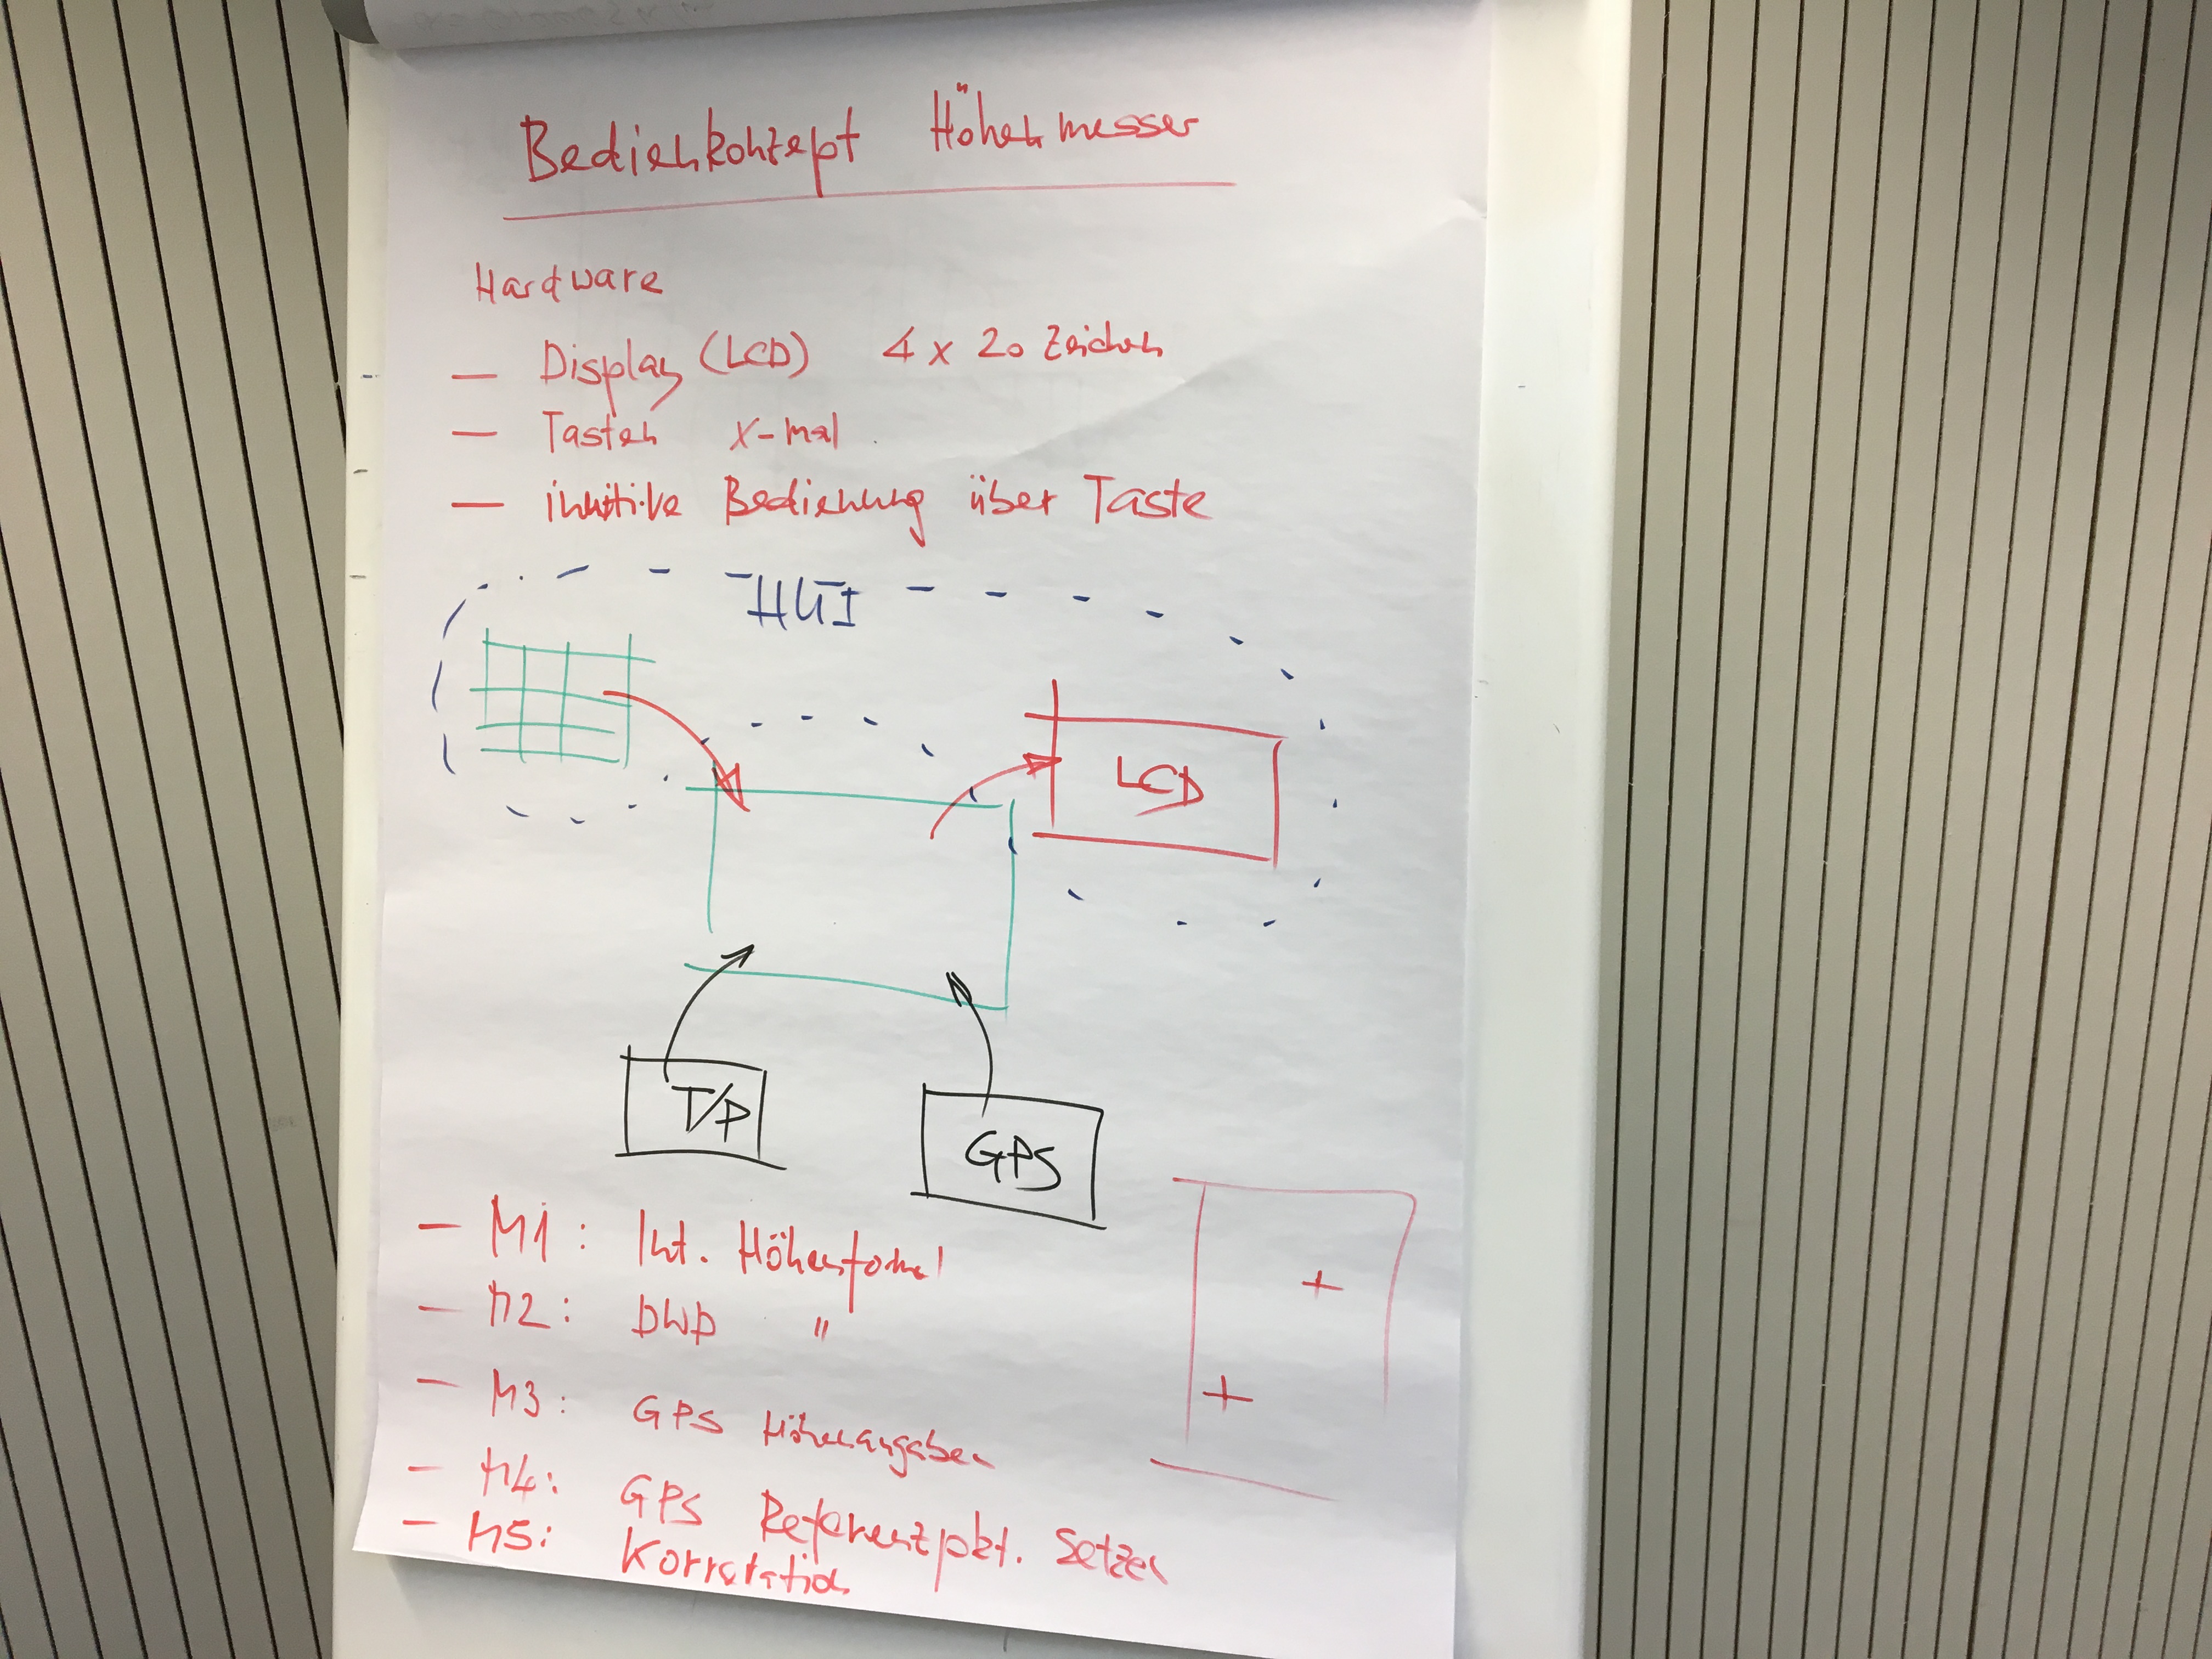 Bedienkonzept Höhenmesser
Hardware
— Display (LCD) 4 x 20 Zeichen
— Tasten x-mal
— intuitive Bedienung über Taste
LCD
T/P
GPS
— M1: Int. Höhenformel
— M2: DWD "
— M3: GPS Höhenangaben
— M4: GPS Referenzpkt. setzen
— M5: